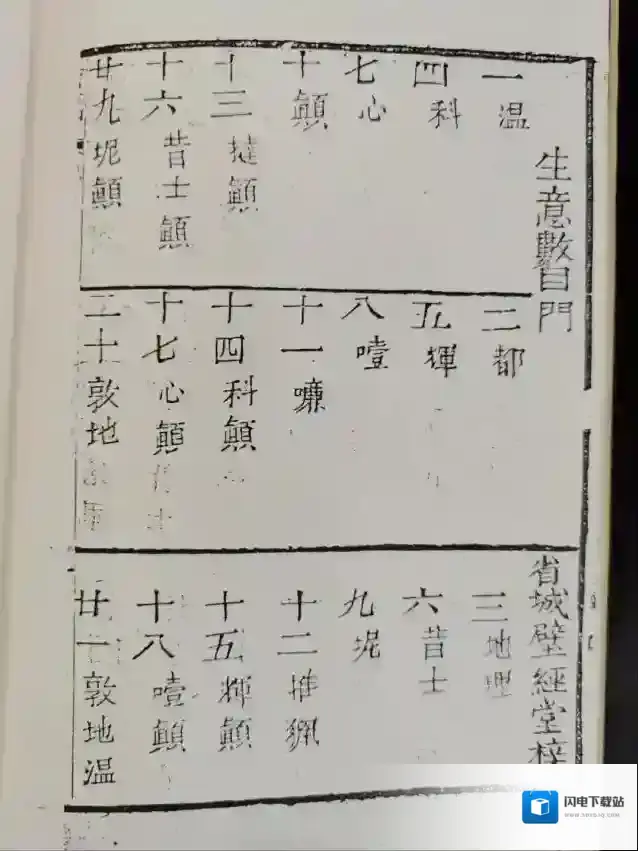 生意數目門
省城壁經堂梓
一 温
二 都
三 地理
四 科
五 輝
六 昔士
七 心
八 噎
九 坭
十 顛
十一 㗒
十二 推獵
十三 撻顛
十四 科顛
十五 輝顛
十六 昔士顛
十七 心顛
十八 噎顛
廿九 坭顛
二十 敦地
廿一 敦地温
闪电下载站